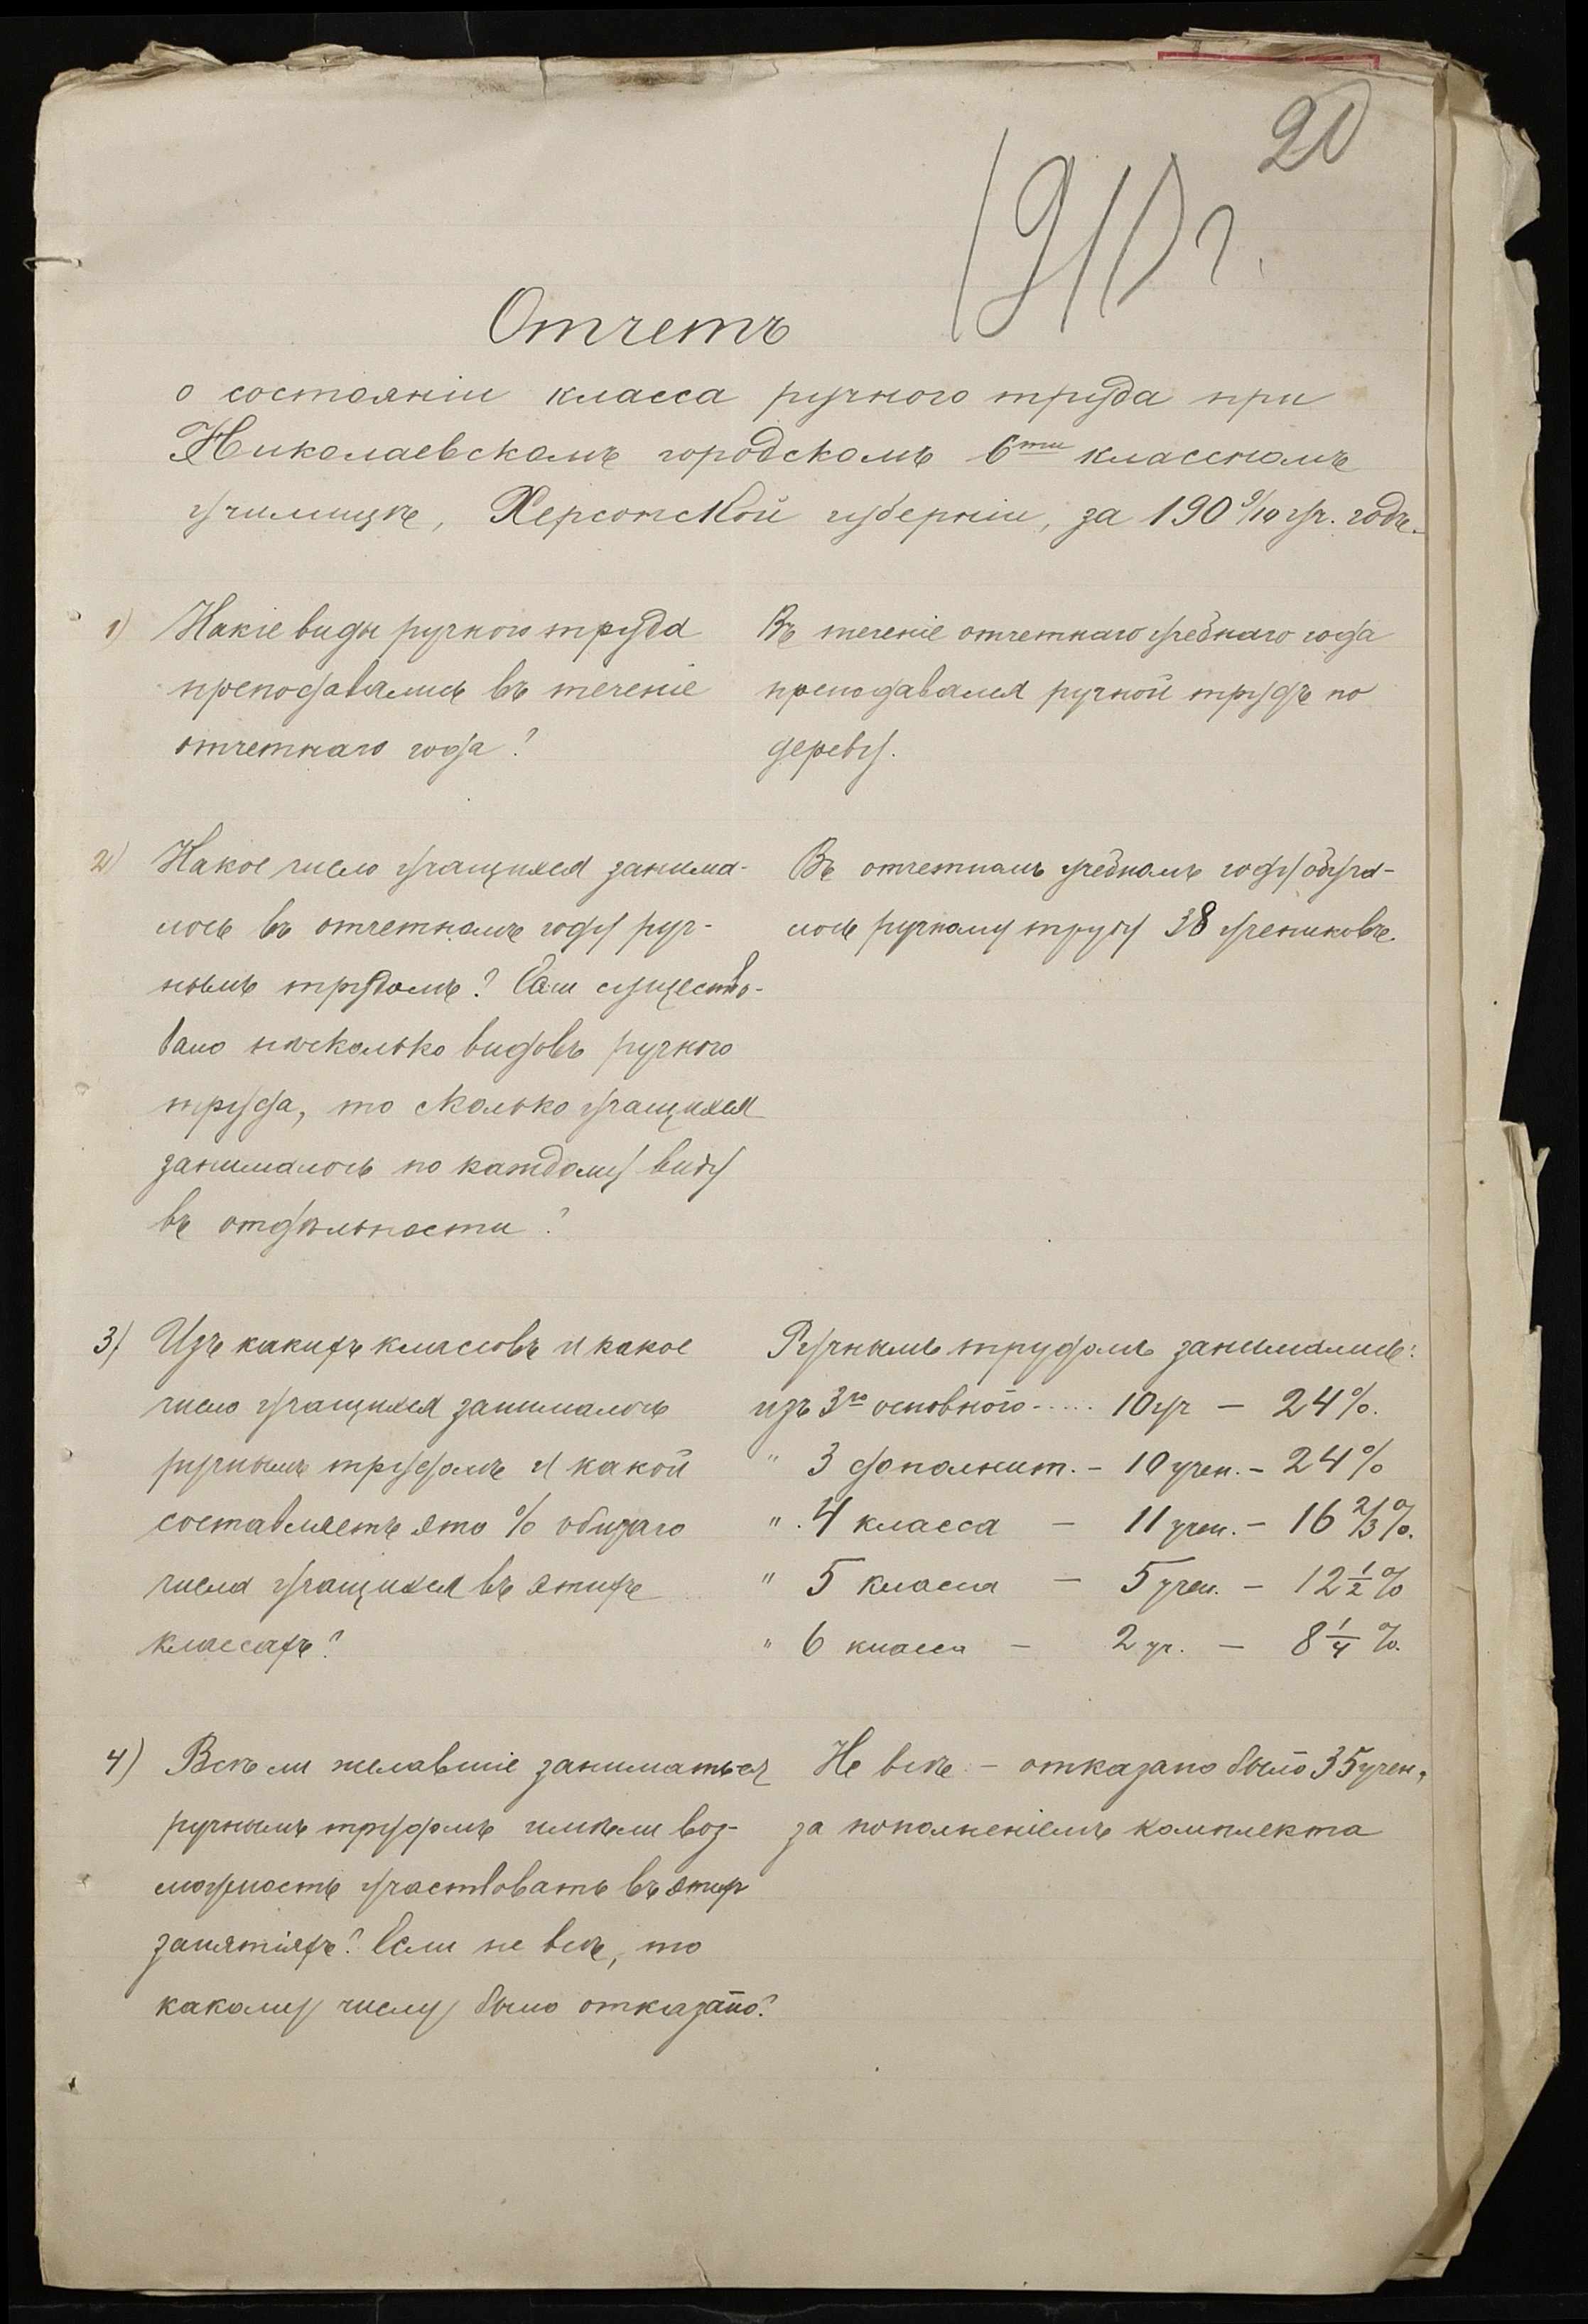 20
1910 г.
Отчетъ
о состояніи класса ручного труда при
Николаевскомъ городскомъ 6ти классномъ
училищѣ, Херсонской губерніи, за 1909/10 уч. годъ.
1) Какіе виды ручного труда
преподавались въ теченіе
отчетнаго года?
Въ теченіе отчетнаго учебнаго года
преподавался ручной трудъ по
дереву.
2) Какое число учащихся занима-
лось въ отчетномъ году руч-
нымъ трудомъ? Если существо-
вало нѣсколько видовъ ручного
труда, то сколько учащихся
занималось по каждому виду
въ отдѣльности?
Въ отчетномъ учебномъ году обуча-
лось ручному труду 38 учениковъ.
3) Изъ какихъ классовъ и какое
число учащихся занималось
ручнымъ трудомъ и какой
составляетъ это % общаго
числа учащихся въ этихъ
классахъ?
Ручнымъ трудомъ занимались:
изъ 3го основного ..... 10 уч — 24%.
" 3 дополнит. – 10 учен. – 24%
" 4 класса — 11 учен. – 16 2/3%.
" 5 класса — 5 учен. – 12 1/2%
" 6 класса — 2 уч. — 8 1/4 %.
4) Всѣ ли желавшіе заниматься
ручнымъ трудомъ имѣли воз-
можность участвовать въ этих
занятіяхъ? Если не всѣ, то
какому числу было отказано?
Не всѣ – отказано было 35 учен,
за пополненіемъ комплекта